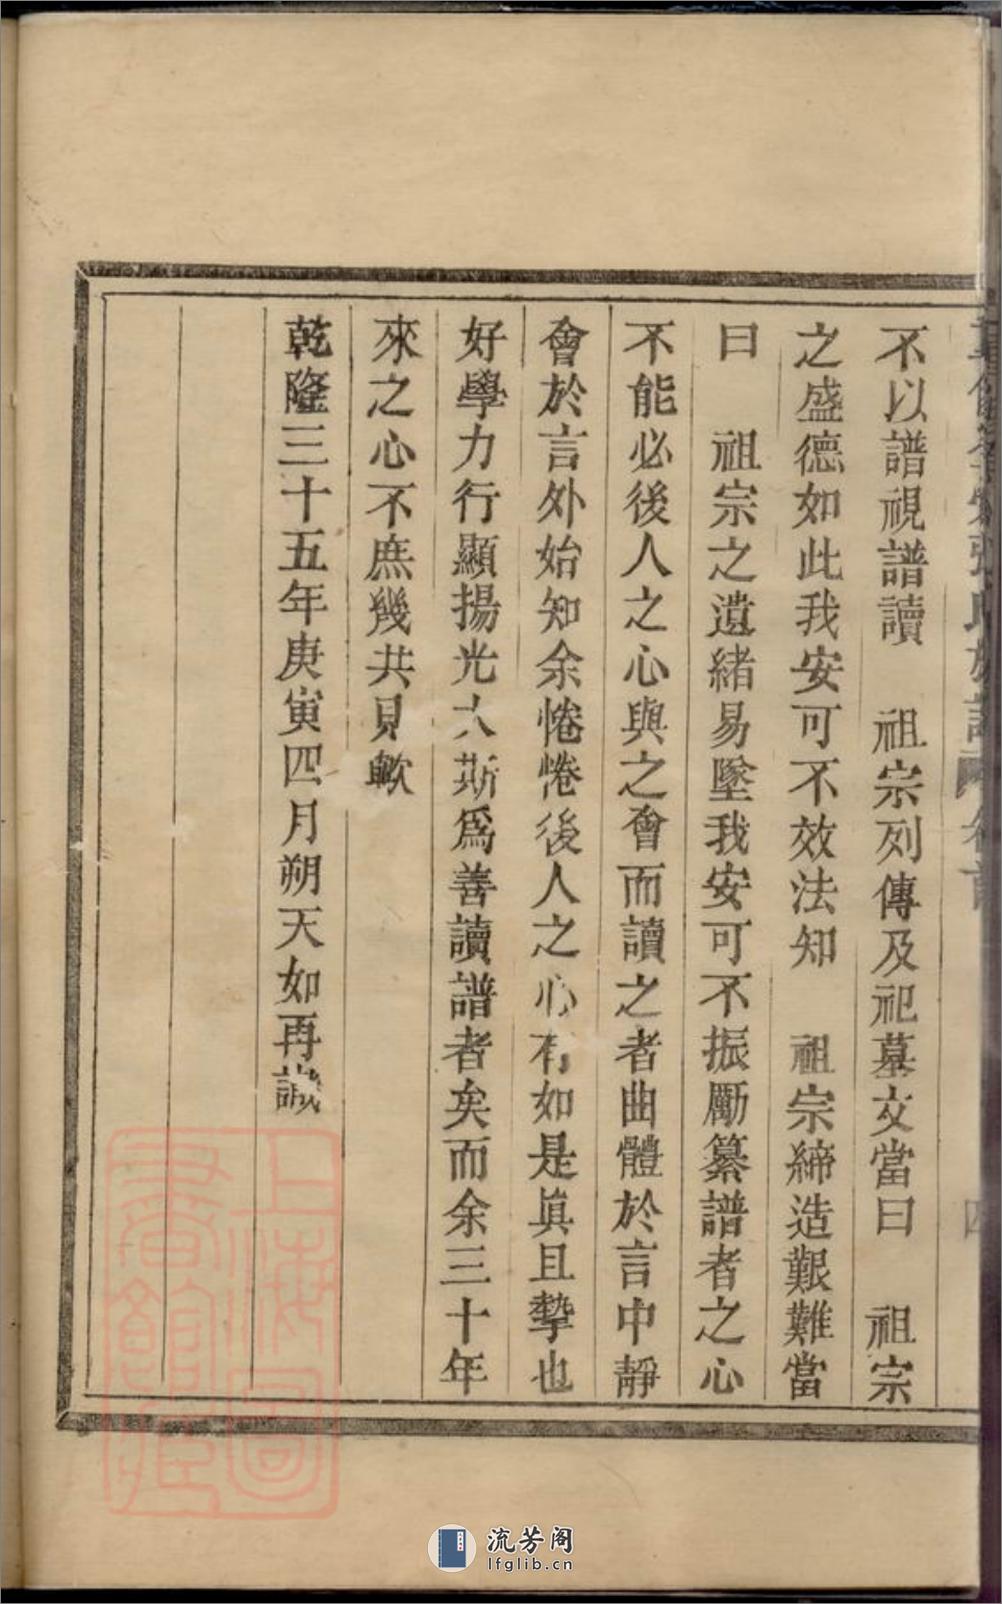 不以譜視譜讀　祖宗列傳及祀墓文當曰　祖宗
之盛德如此我安可不效法知　祖宗締造艱難當
曰　祖宗之遺緒易墜我安可不振勵纂譜者之心
不能必後人之心與之會而讀之者曲體於言中靜
會於言外始知余惓惓後人之心有如是眞且摯也
好學力行顯揚光大斯爲善讀譜者矣而余三十年
來之心不庶幾共見歟
乾隆三十五年庚寅四月朔天如再識
上海圖書館藏
流芳阁
lfglib.cn